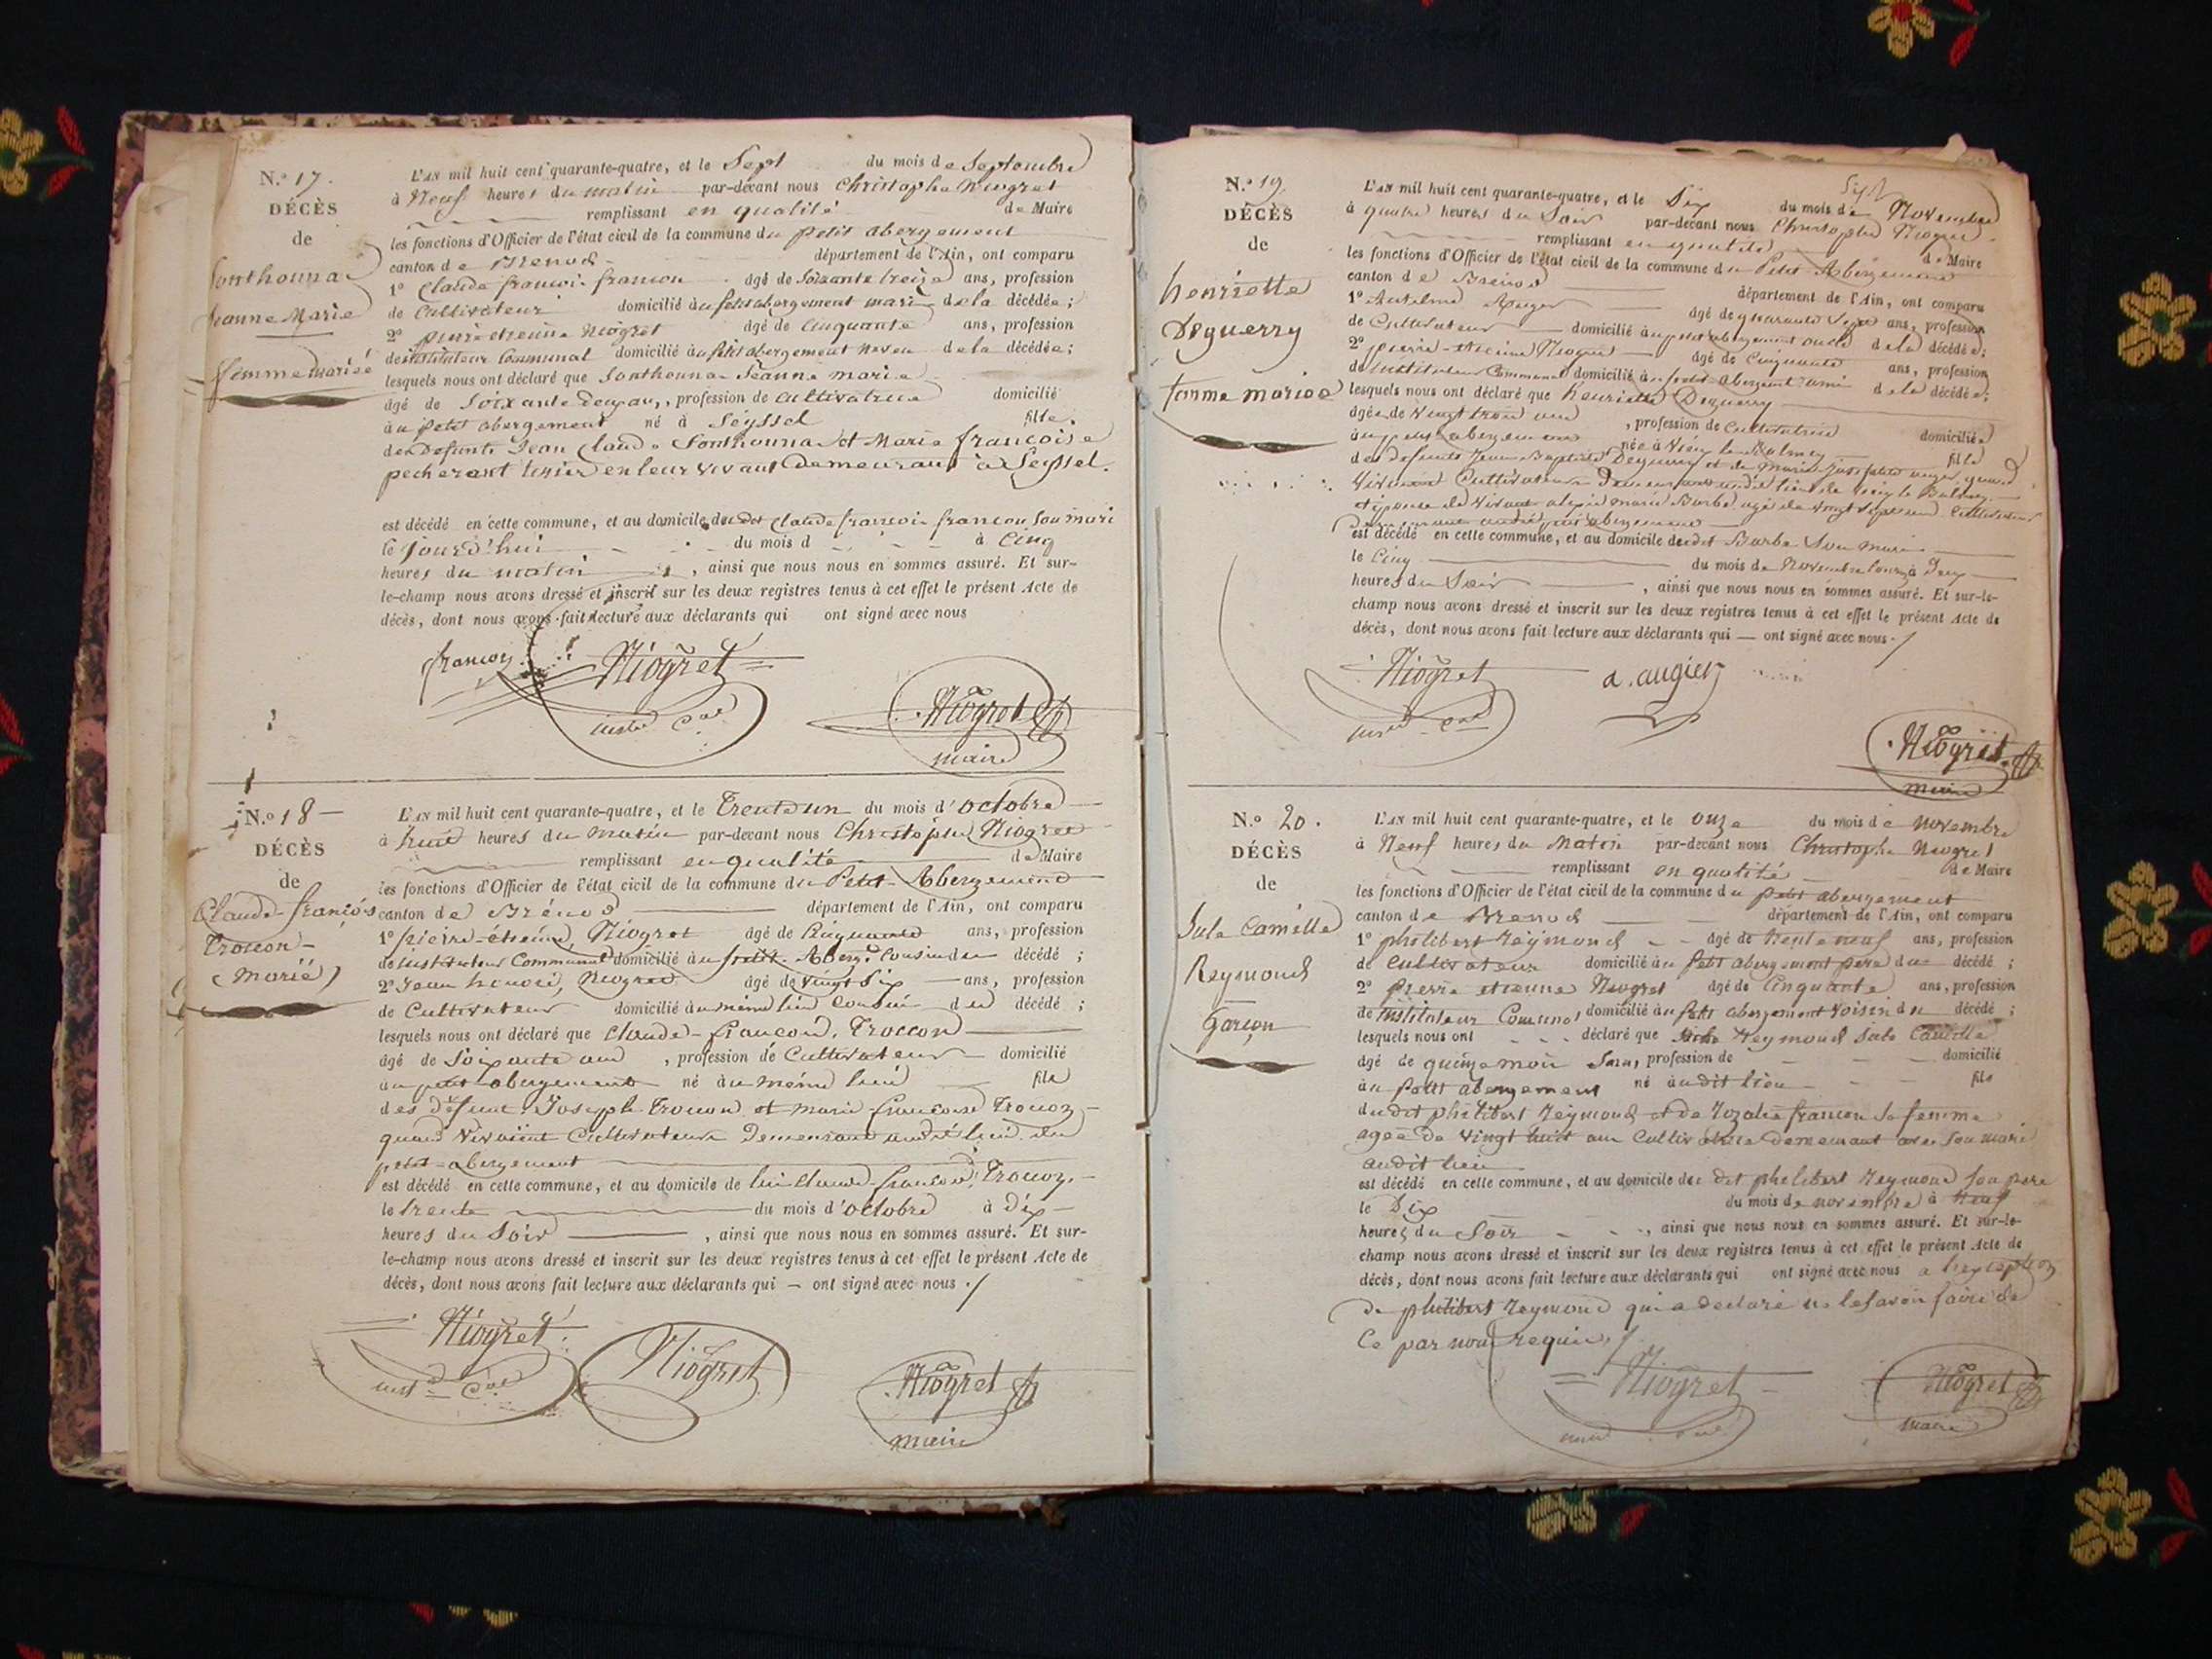 N.º 17.
DÉCÈS
de
Sonthonna
Jeanne Marie
femme mariée
L'AN mil huit cent quarante-quatre, et le Sept du mois de Septembre
à Neuf heures du matin par-devant nous Christophe Niogret
remplissant en qualité de Maire
les fonctions d'Officier de l'état civil de la commune du petit abergement
canton de Brenod département de l'Ain, ont comparu
1º Claude francois francon âgé de Soixante treize ans, profession
de Cultivateur domicilié au petit abergement mari de la décédée;
2º pierre etienne Niogret âgé de Cinquante ans, profession
de instituteur Communal domicilié au petit abergement neveu de la décédée;
lesquels nous ont déclaré que Sonthonna Jeanne marie
âgé de Soixante deux ans, profession de Cultivatrice domicilié
au petit abergement né à Seyssel fille
des Defunts Jean Claude Sonthonna et Marie francoise
pecherant en leur vivant Demeurant à Seyssel.
est décédé en cette commune, et au domicile du dit Claude francois francon Son mari
le jourd'hui du mois d à Cinq
heures du matin, ainsi que nous nous en sommes assuré. Et sur-
le-champ nous avons dressé et inscrit sur les deux registres tenus à cet effet le présent Acte de
décès, dont nous avons fait lecture aux déclarants qui ont signé avec nous
francon Niogret
Niogret
maire
N.º 18
DÉCÈS
de
Claude-françois
Troccon
(Marié)
L'AN mil huit cent quarante-quatre, et le Trente un du mois d'octobre
à huit heures du Matin par-devant nous Christophe Niogret
remplissant en qualité de Maire
les fonctions d'Officier de l'état civil de la commune du Petit-Abergement
canton de Brénod département de l'Ain, ont comparu
1º pierre-étienne Niogret âgé de Cinquante ans, profession
de instituteur Communal domicilié au petit Aberg.t Cousin du décédé;
2º Jean Niogret âgé de Vingt Six ans, profession
de Cultivateur domicilié au même lieu Cousin du décédé;
lesquels nous ont déclaré que Claude-francois Troccon
âgé de Soixante ans, profession de Cultivateur domicilié
au petit abergement né au même lieu fils
des défunts Joseph Troccon et marie francoise Troccon
quand vivaient Cultivateurs Demeurant audit lieu du
petit-abergement
est décédé en cette commune, et au domicile de lui Claude-francois Troccon
le trente du mois d'octobre à dix
heures du Soir, ainsi que nous nous en sommes assuré. Et sur-
le-champ nous avons dressé et inscrit sur les deux registres tenus à cet effet le présent Acte de
décès, dont nous avons fait lecture aux déclarants qui ont signé avec nous
Niogret Niogret Niogret
maire
N.º 19.
DÉCÈS
de
henriette
Deguerry
femme mariée
L'AN mil huit cent quarante-quatre, et le Six du mois de Novembre
à quatre heures du Soir par-devant nous Christophe Niogret
remplissant en qualité de Maire
les fonctions d'Officier de l'état civil de la commune du Petit Abergement
canton de Brénod département de l'Ain, ont comparu
1º Antelme Augier âgé de quarante Sept ans, profession
de Cultivateur domicilié au petit abergement oncle de la décédée;
2º pierre-etienne Niogret âgé de Cinquante ans, profession
de instituteur Communal domicilié au petit abergement ami de la décédée;
lesquels nous ont déclaré que henriette Deguerry
âgée de Vingt trois ans, profession de Cultivatrice domiciliée
au petit abergement née à Vieu la Balmey fille
des défunts Jean Baptiste Deguerry et de Marie Josephte augier quand
Vivaient Cultivateurs Demeurant audit lieu de Vieu la Balmey
et épouse de Vivant alexis marie Barbe agé de Vingt Sept ans Cultivateur
Demeurant audit petit abergement
est décédé en cette commune, et au domicile du dit Barbe Son mari
le Cinq du mois de Novembre à Deux
heures du Soir, ainsi que nous nous en sommes assuré. Et sur-le-
champ nous avons dressé et inscrit sur les deux registres tenus à cet effet le présent Acte de
décès, dont nous avons fait lecture aux déclarants qui ont signé avec nous.
Niogret a. augier
Niogret
maire
N.º 20.
DÉCÈS
de
Jule Camille
Reymond
Garçon
L'AN mil huit cent quarante-quatre, et le onze du mois de novembre
à Neuf heures du Matin par-devant nous Christophe Niogret
remplissant en qualité de Maire
les fonctions d'Officier de l'état civil de la commune du petit abergement
canton de Brenod département de l'Ain, ont comparu
1º philibert Reymond âgé de trente neuf ans, profession
de Cultivateur domicilié au petit abergement père du décédé;
2º pierre etienne Niogret âgé de Cinquante ans, profession
de instituteur Comunal domicilié au petit abergement voisin du décédé;
lesquels nous ont déclaré que Reymond Jule Camille
âgé de quinze mois Sans, profession de domicilié
au petit abergement né audit lieu fils
du dit philibert Reymond et de Rozalie francon Sa femme
agée de Vingt huit ans Cultivatrice demeurant avec Son mari
audit lieu
est décédé en cette commune, et au domicile du dit philibert Reymond Son père
le Dix du mois de novembre à Neuf
heures du Soir, ainsi que nous nous en sommes assuré. Et sur-le-
champ nous avons dressé et inscrit sur les deux registres tenus à cet effet le présent Acte de
décès, dont nous avons fait lecture aux déclarants qui ont signé avec nous a l'exception
de philibert Reymond qui a déclaré ne le savoir faire de
Ce par nous requis
Niogret Niogret
maire